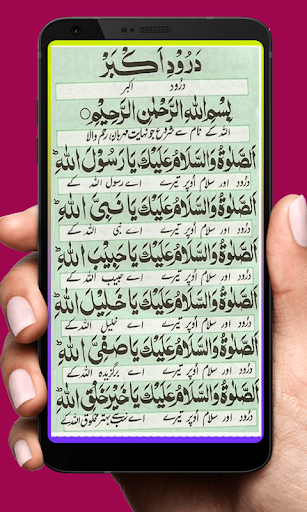 دَرُودِ اَكْبَرْ
درود اکبر
بِسْمِ اللهِ الرَّحْمٰنِ الرَّحِيْمِ
اللہ کے نام سے شروع جو نہایت مہربان رحم والا
اَلصَّلٰوةُ وَالسَّلَامُ عَلَيْكَ يَا رَسُوْلَ اللهِ ط
درود اور سلام اُوپر تیرے اے رسول اللہ کے
اَلصَّلٰوةُ وَالسَّلَامُ عَلَيْكَ يَا نَبِىَّ اللهِ ط
درود اور سلام اُوپر تیرے اے نبی اللہ کے
اَلصَّلٰوةُ وَالسَّلَامُ عَلَيْكَ يَا حَبِيْبَ اللهِ ط
درود اور سلام اُوپر تیرے اے حبیب اللہ کے
اَلصَّلٰوةُ وَالسَّلَامُ عَلَيْكَ يَا خَلِيْلَ اللهِ ط
درود اور سلام اُوپر تیرے اے خلیل اللہ کے
اَلصَّلٰوةُ وَالسَّلَامُ عَلَيْكَ يَا صَفِىَّ اللهِ ط
درود اور سلام اُوپر تیرے اے برگزیدہ اللہ کے
اَلصَّلٰوةُ وَالسَّلَامُ عَلَيْكَ يَا خَيْرَ خَلْقِ اللهِ ط
درود اور سلام اُوپر تیرے اے سب سے بہتر مخلوق اللہ کے